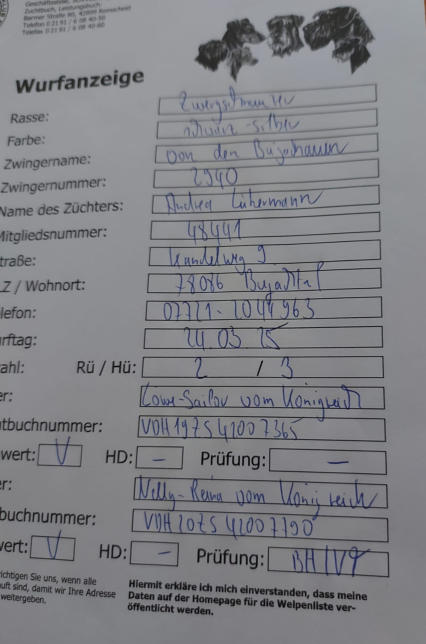 Geschäftsstelle,
Zuchtbuch, Leistungsbuch:
Barmer Straße 80, 42899 Remscheid
Telefon 0 21 91 /
Telefax 0 21 91 /
Wurfanzeige
Rasse: Zwergschnauzer
Farbe: schwarz-silber
Zwingername: von den
Zwingernummer: 2940
Name des Züchters: Andrea
Mitgliedsnummer: 48441
traße: 9
LZ / Wohnort: 78086
lefon: 07721-2044963
urftag: 24.03.25
ahl: Rü / Hü: 2 / 3
er: vom Königreich
tbuchnummer: VDH 19ZS 41007365
wert: V HD: – Prüfung: –
er: Nelly- vom Königreich
buchnummer: VDH 20ZS 41007190
wert: V HD: – Prüfung: BH/VT
richtigen Sie uns, wenn alle
uft sind, damit wir Ihre Adresse
weitergeben.
Hiermit erkläre ich mich einverstanden, dass meine
Daten auf der Homepage für die Welpenliste ver-
öffentlicht werden.